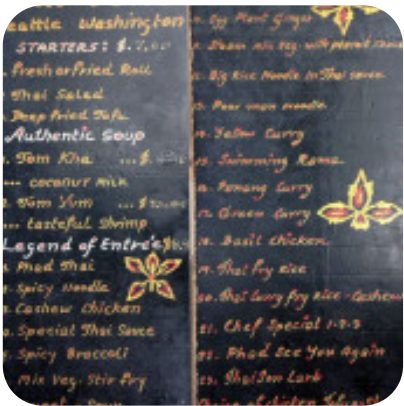 eattle Washington
STARTERS: $.7.00
Fresh or Fried Roll
Thai Salad
Deep Fried Tofu
Authentic Soup
Tom Kha ...$.
... coconut milk
Tum Yum ...$
... tasteful shrimp
Legend of Entrée
Phad Thai
Spicy Noodle
Cashew Chicken
Special Thai Sauce
Spicy Broccoli
Mix Veg. Stir fry
Egg Plant Ginger
Steam mix veg. with peanut
Big Rice Noodle In Thai sauce
Poor man noodle
Yellow Curry
Swimming Rama
Panang Curry
Green Curry
Basil Chicken
Thai Fry Rice
Thai Curry fry Rice - Cashew
21. Chef Special 1-2-3
Phad See You Again
Thai Ton Larb
of chicken